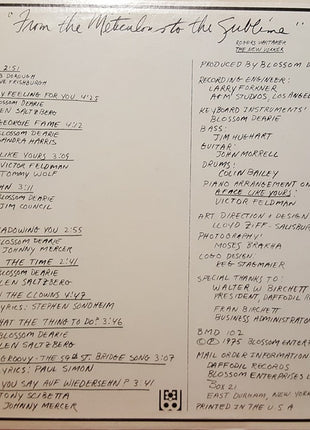 "From the Meticulous to the Sublime"
ROGERS WHITAKER
THE NEW YORKER
2:51
B DOROUGH
VE FRISHBURGH
Y FEELING FOR YOU 4:25
BLOSSOM DEARIE
LEN SALTZBERG
GEORGIE FAME 4:12
BLOSSOM DEARIE
SANDRA HARRIS
LIKE YOURS 3:09
VICTOR FELDMAN
TOMMY WOLF
HN 3:11
BLOSSOM DEARIE
JIM COUNCIL
HADOWING YOU 2:55
BLOSSOM DEARIE
JOHNNY MERCER
THE TIME 2:41
BLOSSOM DEARIE
LEN SALTZBERG
N THE CLOWNS 4:47
LYRICS: STEPHEN SONDHEIM
HAT THE THING TO DO? 3:46
BLOSSOM DEARIE
LEN SALTZBERG
GROOVY - THE 59th ST. BRIDGE SONG 3:07
LYRICS: PAUL SIMON
YOU SAY AUF WIEDERSEHN? 3:41
TONY SCIBETTA
JOHNNY MERCER
PRODUCED BY BLOSSOM D
RECORDING ENGINEER:
LARRY FORKNER
A+M STUDIOS, LOS ANGEL
KEYBOARD INSTRUMENTS:
BLOSSOM DEARIE
BASS:
JIM HUGHART
GUITAR:
JOHN MORRELL
DRUMS:
COLIN BAILEY
PIANO ARRANGEMENT ON
A FACE LIKE YOURS:
VICTOR FELDMAN
ART DIRECTION + DESIGN:
LLOYD ZIFF - SALISBU
PHOTOGRAPHY:
MOSES BRAKHA
LOGO DESIGN:
REG STAGMAIER
SPECIAL THANKS TO:
WALTER W BIRCHETT
PRESIDENT, DAFFODIL RE
FRAN BIRCHETT
BUSINESS ADMINISTRAT
BMD 102
© ℗ 1975 BLOSSOM ENTER
MAIL ORDER INFORMATION
DAFFODIL RECORDS
BLOSSOM ENTERPRISES L
BOX 21
EAST DURHAM, NEW YORK
PRINTED IN THE U S A